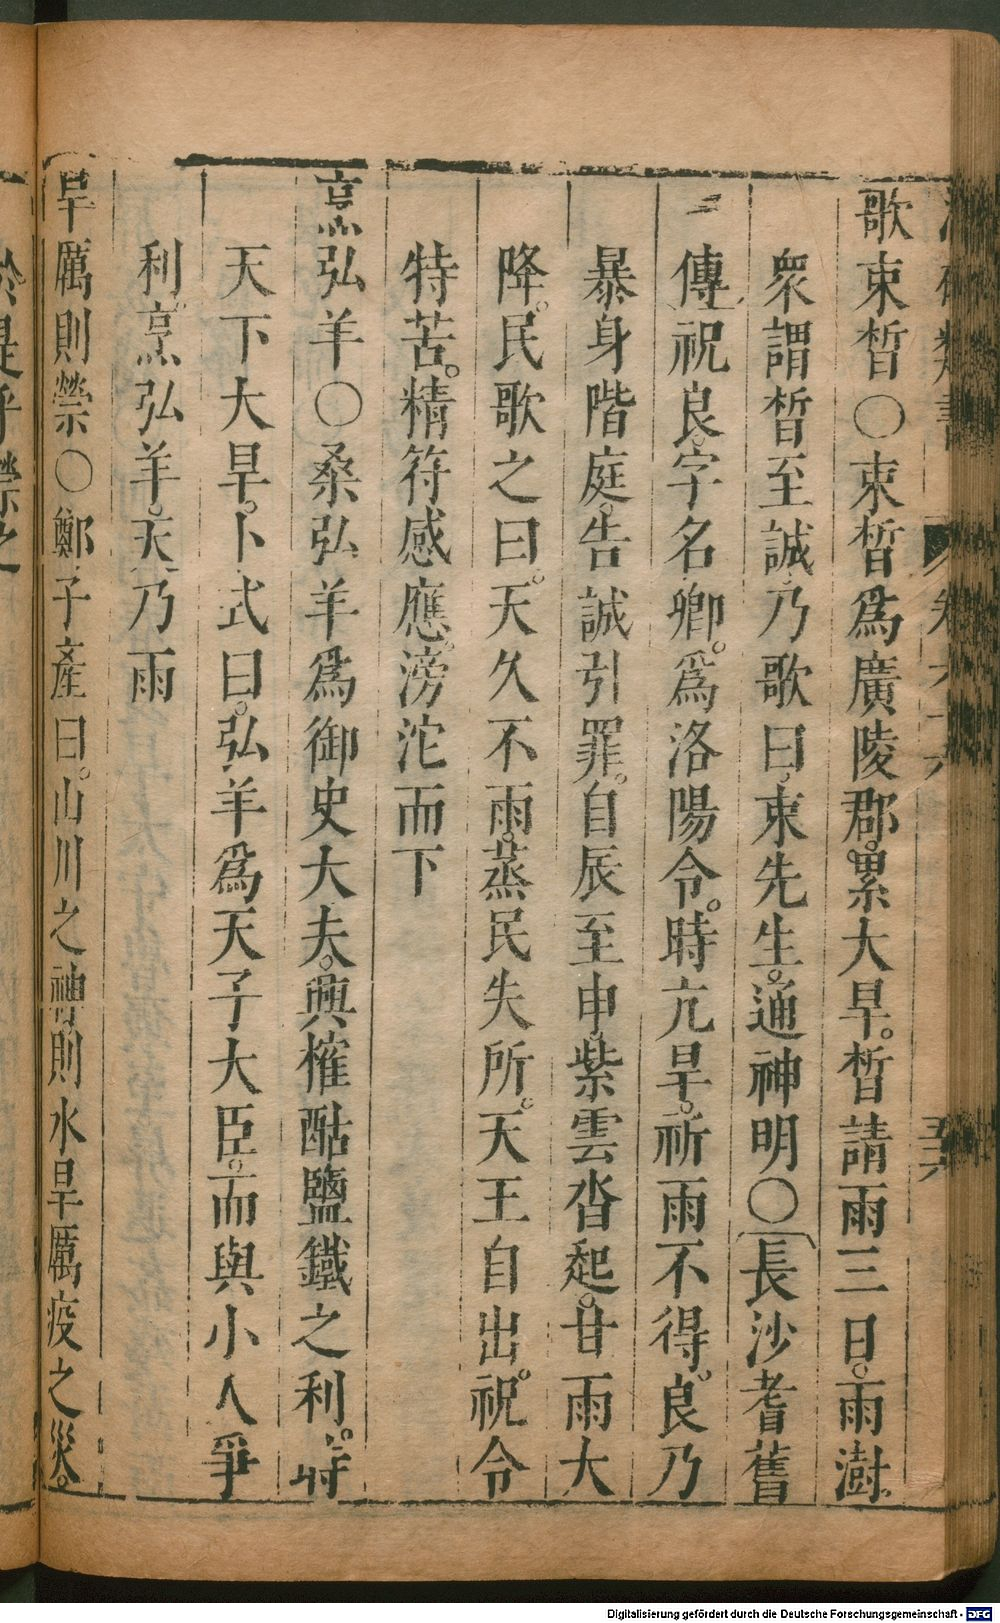 歌束晳○束晳爲廣陵郡。累大旱。晳請雨三日。雨澍
衆謂晳至誠。乃歌曰。束先生。通神明○〔長沙耆舊
傳〕祝良。字名卿。爲洛陽令。時亢旱。祈雨不得。良乃
暴身階庭。告誠引罪。自辰至申。紫雲沓起。甘雨大
降。民歌之曰。天久不雨。蒸民失所。天王自出。祝令
特苦。精符感應。滂沱而下
烹弘羊○桑弘羊爲御史大夫。興榷酤鹽鐵之利。時
天下大旱。卜式曰。弘羊爲天子大臣。而與小人爭
利。烹弘羊。天乃雨
旱厲則禜○鄭子產曰。山川之神則水旱厲疫之災。
於是乎禜之
五六
Digitalisierung gefördert durch die Deutsche Forschungsgemeinschaft - DFG